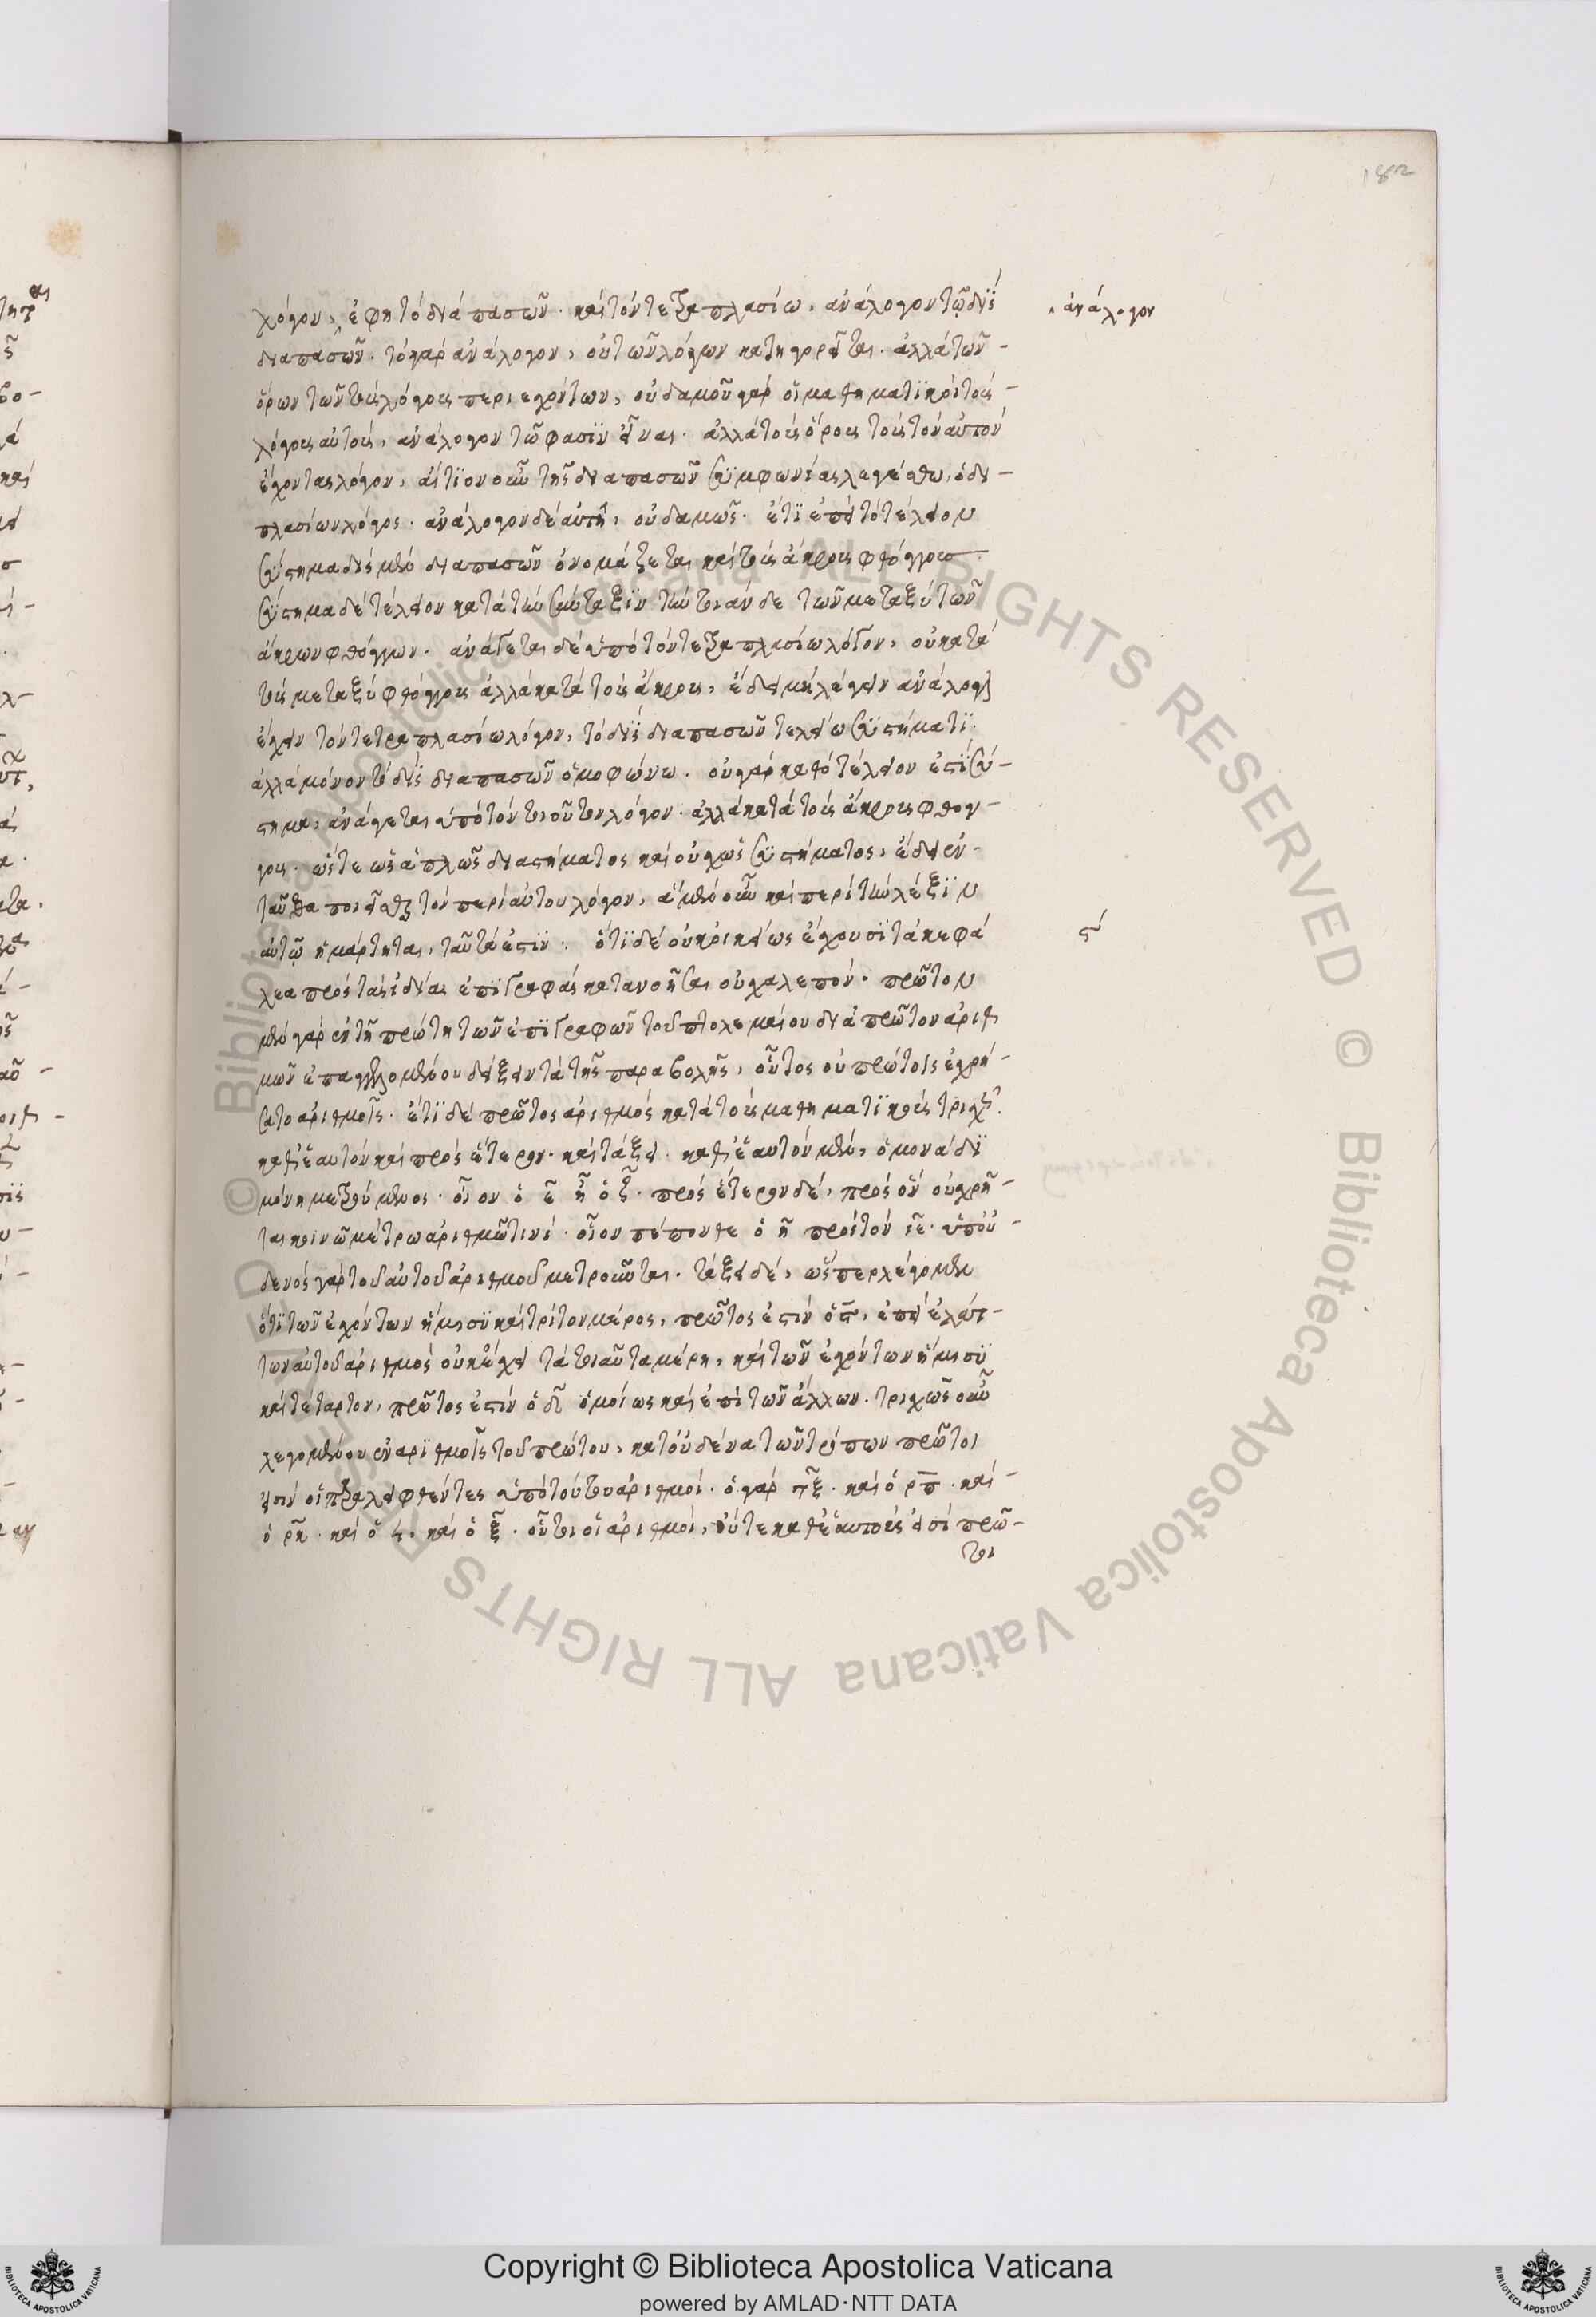 182
λόγον, ἔφη τὸ διὰ πασῶν. καὶ τὸν τετραπλασίω, ἀνάλογον τῷ δὶς
ἀνάλογον
διαπασῶν. τὸ γὰρ ἀνάλογον, οὐ τῶν λόγων κατηγορεῖται. ἀλλὰ τῶν
ὅρων τῶν τοὺς λόγους περιεχόντων, οὐδαμοῦ γὰρ οἱ μαθηματικοὶ τοὺς
λόγους αὐτοὺς, ἀνάλογόν τῳ φασὶν εἶναι. ἀλλὰ τοὺς ὅρους τοὺς τὸν αὐτὸν
ἔχοντας λόγον, αἴτιον οὖν τῆς διαπασῶν συμφωνίας λεγέσθω, ὁ δι
πλασίων λόγος. ἀνάλογον δὲ αὐτῇ, οὐδαμῶς. ἔτι ἐπεὶ τὸ τέλειον
σύστημα δὶς μὲν διαπασῶν ὀνομάζεται καὶ τοὺς ἄκρους φθόγγους
σύστημα δὲ τέλειον κατὰ τὴν σύνταξιν τὴν τοιάνδε τῶν μεταξὺ τῶν
ἄκρων φθόγγων. ἀνάγεται δὲ ὑπὸ τὸν τετραπλασίω λόγον, οὐ κατὰ
τοὺς μεταξὺ φθόγγους ἀλλὰ κατὰ τοὺς ἄκρους, ἔδει μὴ λέγειν ἀνάλογον
ἔχειν τὸν τετραπλασίω λόγον, τὸ δὶς διαπασῶν τελείω συστήματι.
ἀλλὰ μόνον τὸ δὶς διαπασῶν ὁμοφώνω. οὐ γὰρ καθὸ τέλειον ἐστὶ σύ
στημα, ἀνάγεται ὑπὸ τὸν τοιοῦτον λόγον. ἀλλὰ κατὰ τοὺς ἄκρους φθογ
γους. ὥστε ὡς ἁπλῶς διαστήματος καὶ οὐχ ὡς συστήματος, ἔδει ἐν
ταῦθα ποιεῖσθαι τὸν περὶ αὐτοῦ λόγον, ἃ μὲν οὖν καὶ περὶ τὴν λέξιν
αὐτῷ ἡμάρτηται, ταῦτά ἐστιν. ὅτι δὲ οὐκ οἰκείως ἔχουσι τὰ κεφά
λεα πρὸς τὰς ἰδίας ἐπιγραφὰς κατανοῆσαι οὐ χαλεπόν. πρῶτον
μὲν γὰρ ἐν τῇ πρώτῃ τῶν ἐπιγραφῶν τοῦ πτολεμαίου διὰ πρῶτον ἀριθ
μῶν ἐπαγγελομένου δεῖξειν τὰ τῆς παραβολῆς, οὗτος οὐ πρώτοις ἐχρή
σατο ἀριθμοῖς. ἔτι δὲ πρῶτος ἀριθμὸς κατὰ τοὺς μαθηματικοὺς τριχῶς.
καθ' ἑαυτὸν καὶ πρὸς ἕτερον. καὶ τάξει. καθ' ἑαυτὸν μὲν, ὁ μονάδι
μόνη μετρούμενος. οἷον ὁ ε̄ ἢ ὁ ζ̄. πρὸς ἕτερον δὲ, πρὸς ὃν οὐ χρῆ
ται κοινῷ μέτρω ἀριθμῷ τινὶ. οἷον πέπονθε ὁ η̄ πρὸς τὸν ιε̄. ὑπ' οὐ
δενὸς γὰρ τοῦ αὐτοῦ ἀριθμοῦ μετροῦνται. τάξει δὲ, ὥσπερ λέγομεν
ὅτι τῶν ἐχόντων ἥμισυ καὶ τρίτον μέρος, πρῶτος ἐστὶν ὁ ϛ̄, ἐπεὶ ἐλάτ
των αὐτοῦ ἀριθμὸς οὐκ ἔχει τὰ τοιαῦτα μέρη, καὶ τῶν ἐχόντων ἥμισυ
καὶ τέταρτον, πρῶτος ἐστὶν ὁ δ̄ ὁμοίως καὶ ἐπὶ τῶν ἄλλων. τριχῶς οὖν
λεγομένου ἐν ἀριθμοῖς τοῦ πρώτου, κατ' οὐδένα τῶν τρόπων πρῶτοι
εἰσὶν οἱ παραλειφθέντες ὑπὸ τούτου ἀριθμοί. ὁ γὰρ τξ. καὶ ὁ ρπ. καὶ
ὁ ρη. καὶ ὁ ϟ. καὶ ὁ ξ. οὗτοι οἱ ἀριθμοὶ, οὔτε καθ' ἑαυτούς εἰσι πρῶ
τοι